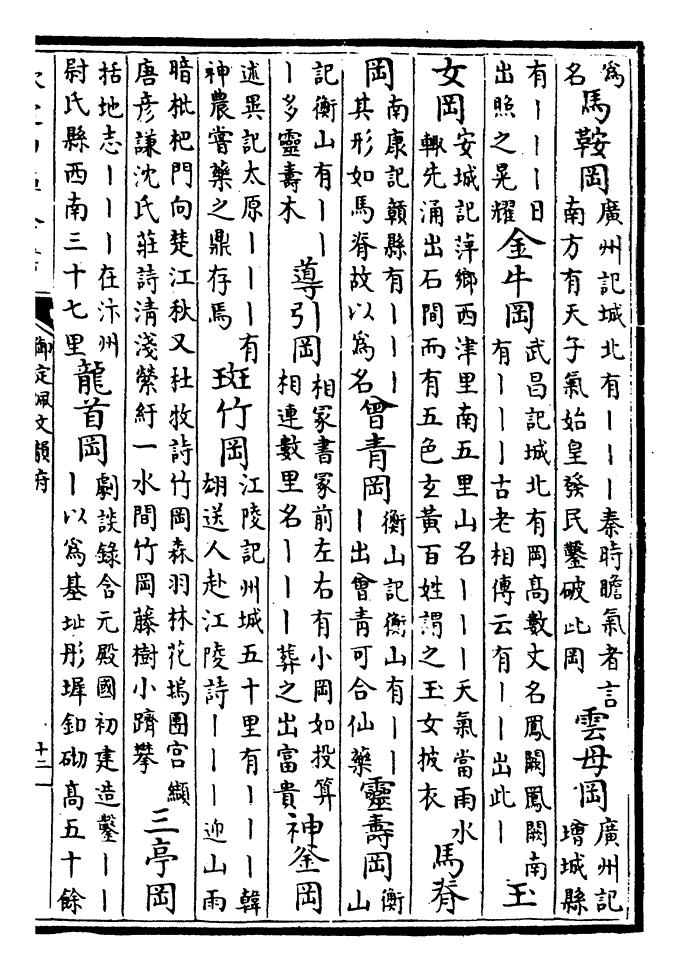 爲名馬鞍岡廣州記城北有丨丨丨秦時瞻氣者言南方有天子氣始皇發民鑿破此岡雲母岡廣州記增城縣
有丨丨丨日出照之晃耀金牛岡武昌記城北有岡高數丈名鳳闕鳳闕南有丨丨丨古老相傳云有丨丨出此丨玉
女岡安城記萍鄉西津里南五里山名丨丨丨天氣當雨水輙先涌出石間而有五色玄黃百姓謂之玉女披衣馬脊
岡南康記贛縣有丨丨丨其形如馬脊故以爲名曾青岡衡山記衡山有丨丨丨出曾青可合仙藥靈壽岡衡山
記衡山有丨丨丨多靈壽木導引岡相冢書冢前左右有小岡如投算相連數里名丨丨丨葬之出富貴神釜岡
述異記太原丨丨丨有神農嘗藥之鼎存焉斑竹岡江陵記州城五十里有丨丨丨韓翃送人赴江陵詩丨丨丨迎山雨
暗枇杷門向楚江秋又杜牧詩竹岡森羽林花塢團宮纈唐彥謙沈氏莊詩清淺縈紆一水間竹岡藤樹小躋攀三亭岡
括地志丨丨丨在汴州尉氏縣西南三十七里龍首岡劇談錄含元殿國初建造鑿丨丨丨以爲基址彤墀釦砌高五十餘
御定佩文韻府
十二